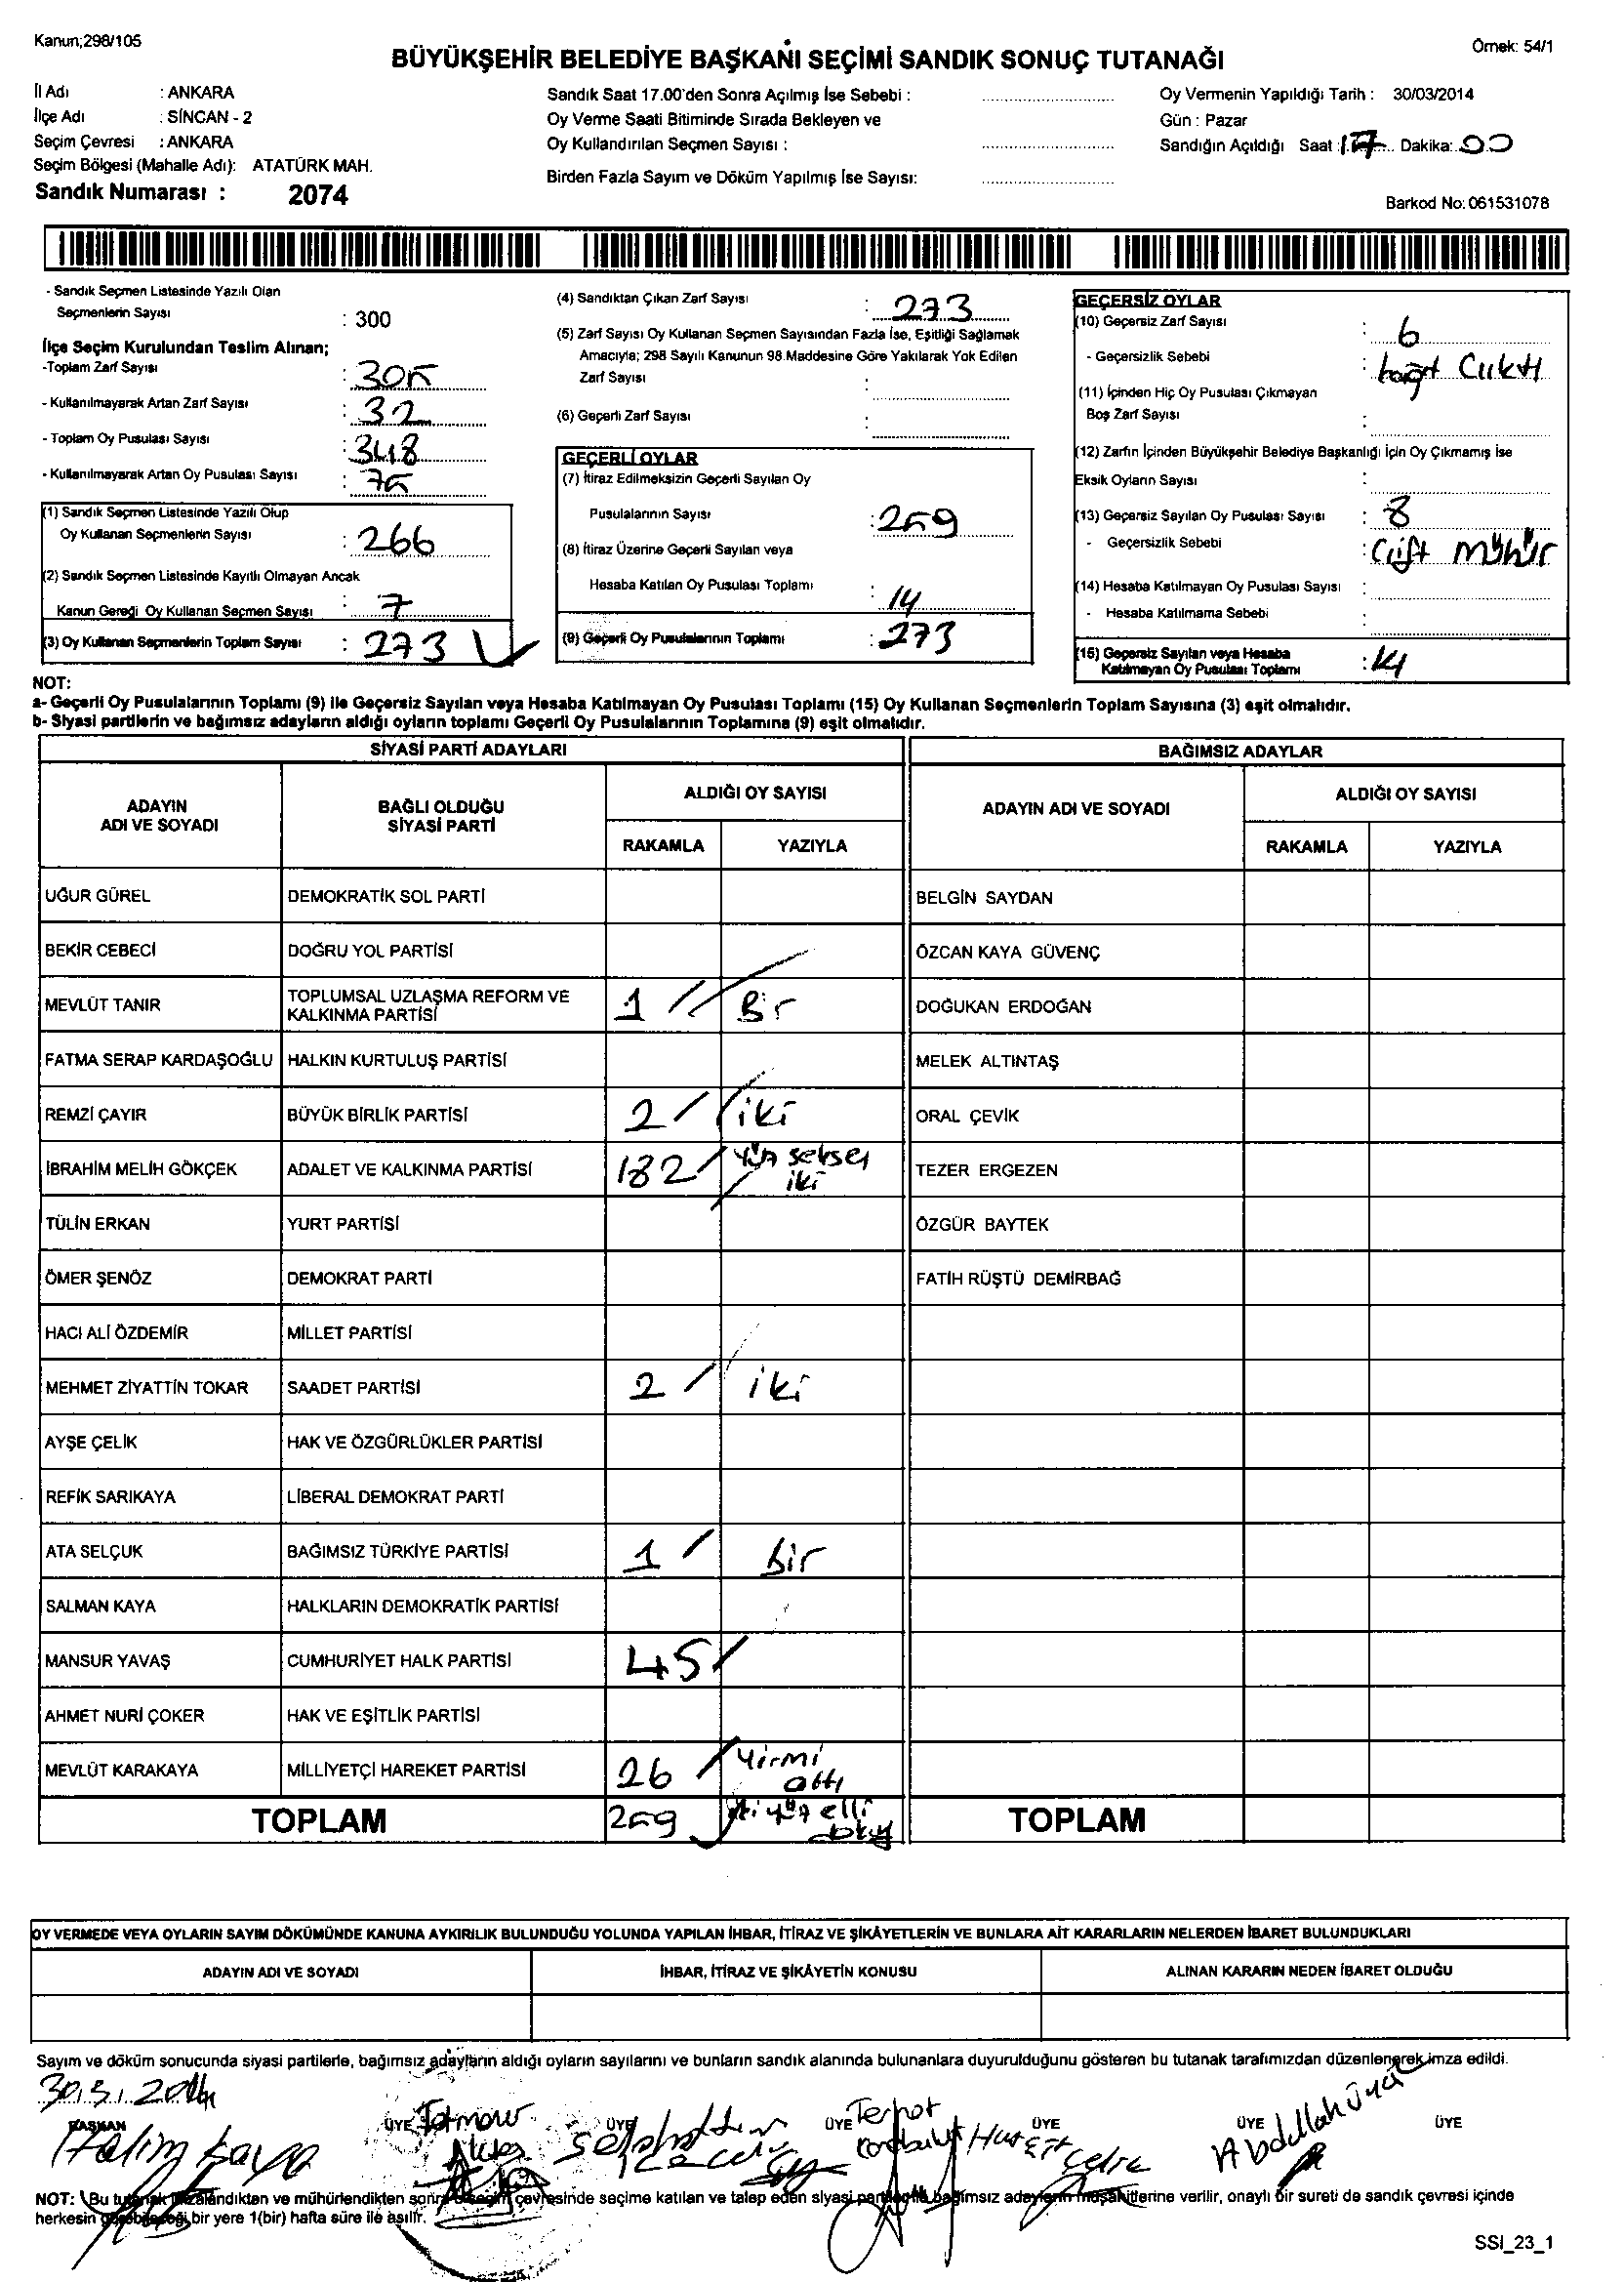 Kanun;298/105
Örnek: 54/1
BÜYÜKŞEHİR BELEDİYE BAŞKANI SEÇİMİ SANDIK SONUÇ TUTANAĞI
İl Adı : ANKARA
İlçe Adı : SİNCAN - 2
Seçim Çevresi : ANKARA
Seçim Bölgesi (Mahalle Adı): ATATÜRK MAH.
Sandık Numarası : 2074
Sandık Saat 17.00'den Sonra Açılmış İse Sebebi :
Oy Verme Saati Bitiminde Sırada Bekleyen ve
Oy Kullandırılan Seçmen Sayısı :
Birden Fazla Sayım ve Döküm Yapılmış İse Sayısı:
Oy Vermenin Yapıldığı Tarih : 30/03/2014
Gün : Pazar
Sandığın Açıldığı Saat : 17 Dakika: 00
Barkod No: 061531078
- Sandık Seçmen Listesinde Yazılı Olan
Seçmenlerin Sayısı : 300
İlçe Seçim Kurulundan Teslim Alınan;
-Toplam Zarf Sayısı : 305
- Kullanılmayarak Artan Zarf Sayısı : 32
- Toplam Oy Pusulası Sayısı : 348
- Kullanılmayarak Artan Oy Pusulası Sayısı : 75
(1) Sandık Seçmen Listesinde Yazılı Olup
Oy Kullanan Seçmenlerin Sayısı : 266
(2) Sandık Seçmen Listesinde Kayıtlı Olmayan Ancak
Kanun Gereği Oy Kullanan Seçmen Sayısı : 7
(3) Oy Kullanan Seçmenlerin Toplam Sayısı : 273
(4) Sandıktan Çıkan Zarf Sayısı : 273
(5) Zarf Sayısı Oy Kullanan Seçmen Sayısından Fazla İse, Eşitliği Sağlamak
Amacıyla; 298 Sayılı Kanunun 98.Maddesine Göre Yakılarak Yok Edilen
Zarf Sayısı :
(6) Geçerli Zarf Sayısı :
GEÇERLİ OYLAR
(7) İtiraz Edilmeksizin Geçerli Sayılan Oy
Pusulalarının Sayısı : 259
(8) İtiraz Üzerine Geçerli Sayılan veya
Hesaba Katılan Oy Pusulası Toplamı : 14
(9) Geçerli Oy Pusulalarının Toplamı : 273
GEÇERSİZ OYLAR
(10) Geçersiz Zarf Sayısı : 6
- Geçersizlik Sebebi : Çıktı
(11) İçinden Hiç Oy Pusulası Çıkmayan
Boş Zarf Sayısı :
(12) Zarfın İçinden Büyükşehir Belediye Başkanlığı İçin Oy Çıkmamış İse
Eksik Oyların Sayısı :
(13) Geçersiz Sayılan Oy Pusulası Sayısı : 8
- Geçersizlik Sebebi : Çift mühür
(14) Hesaba Katılmayan Oy Pusulası Sayısı :
- Hesaba Katılmama Sebebi :
(15) Geçersiz Sayılan veya Hesaba
Katılmayan Oy Pusulası Toplamı : 14
NOT:
a- Geçerli Oy Pusulalarının Toplamı (9) ile Geçersiz Sayılan veya Hesaba Katılmayan Oy Pusulası Toplamı (15) Oy Kullanan Seçmenlerin Toplam Sayısına (3) eşit olmalıdır.
b- Siyasi partilerin ve bağımsız adayların aldığı oyların toplamı Geçerli Oy Pusulalarının Toplamına (9) eşit olmalıdır.
SİYASİ PARTİ ADAYLARI
BAĞIMSIZ ADAYLAR
ADAYIN
ADI VE SOYADI
BAĞLI OLDUĞU
SİYASİ PARTİ
ALDIĞI OY SAYISI
RAKAMLA YAZIYLA
ADAYIN ADI VE SOYADI
ALDIĞI OY SAYISI
RAKAMLA YAZIYLA
UĞUR GÜREL DEMOKRATİK SOL PARTİ BELGİN SAYDAN
BEKİR CEBECİ DOĞRU YOL PARTİSİ ÖZCAN KAYA GÜVENÇ
MEVLÜT TANIR TOPLUMSAL UZLAŞMA REFORM VE
KALKINMA PARTİSİ 1 Bir DOĞUKAN ERDOĞAN
FATMA SERAP KARDAŞOĞLU HALKIN KURTULUŞ PARTİSİ MELEK ALTINTAŞ
REMZİ ÇAYIR BÜYÜK BİRLİK PARTİSİ 2 iki ORAL ÇEVİK
İBRAHİM MELİH GÖKÇEK ADALET VE KALKINMA PARTİSİ 182 yüz seksen
iki TEZER ERGEZEN
TÜLİN ERKAN YURT PARTİSİ ÖZGÜR BAYTEK
ÖMER ŞENÖZ DEMOKRAT PARTİ FATİH RÜŞTÜ DEMİRBAĞ
HACI ALİ ÖZDEMİR MİLLET PARTİSİ
MEHMET ZİYATTİN TOKAR SAADET PARTİSİ 2 iki
AYŞE ÇELİK HAK VE ÖZGÜRLÜKLER PARTİSİ
REFİK SARIKAYA LİBERAL DEMOKRAT PARTİ
ATA SELÇUK BAĞIMSIZ TÜRKİYE PARTİSİ 1 bir
SALMAN KAYA HALKLARIN DEMOKRATİK PARTİSİ
MANSUR YAVAŞ CUMHURİYET HALK PARTİSİ 45
AHMET NURİ ÇOKER HAK VE EŞİTLİK PARTİSİ
MEVLÜT KARAKAYA MİLLİYETÇİ HAREKET PARTİSİ 26 Yirmi
altı
TOPLAM 259 iki yüz elli
dokuz TOPLAM
OY VERMEDE VEYA OYLARIN SAYIM DÖKÜMÜNDE KANUNA AYKIRILIK BULUNDUĞU YOLUNDA YAPILAN İHBAR, İTİRAZ VE ŞİKÂYETLERİN VE BUNLARA AİT KARARLARIN NELERDEN İBARET BULUNDUKLARI
ADAYIN ADI VE SOYADI İHBAR, İTİRAZ VE ŞİKÂYETİN KONUSU ALINAN KARARIN NEDEN İBARET OLDUĞU
Sayım ve döküm sonucunda siyasi partilerle, bağımsız adayların aldığı oyların sayılarını ve bunların sandık alanında bulunanlara duyurulduğunu gösteren bu tutanak tarafımızdan düzenlenerek imza edildi.
30.3.2014
BAŞKAN ÜYE ÜYE ÜYE ÜYE ÜYE ÜYE
Halim Kaya Abdullah Ünal
NOT: Bu tutanak imzalandıktan ve mühürlendikten sonra seçim çevresinde seçime katılan ve talep eden siyasi parti bağımsız adayların müşahitlerine verilir, onaylı bir sureti de sandık çevresi içinde
herkesin görebileceği bir yere 1(bir) hafta süre ile asılır.
SSI_23_1